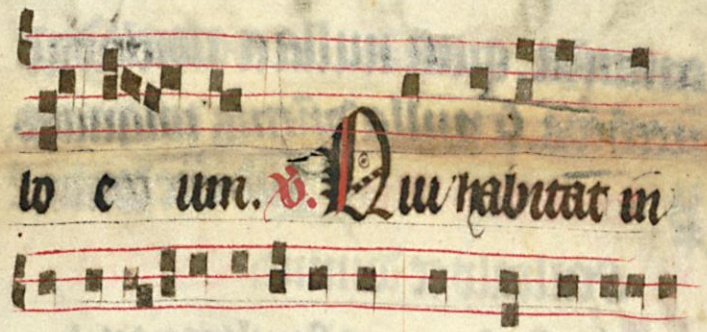 io e um. V. Qui habitat in